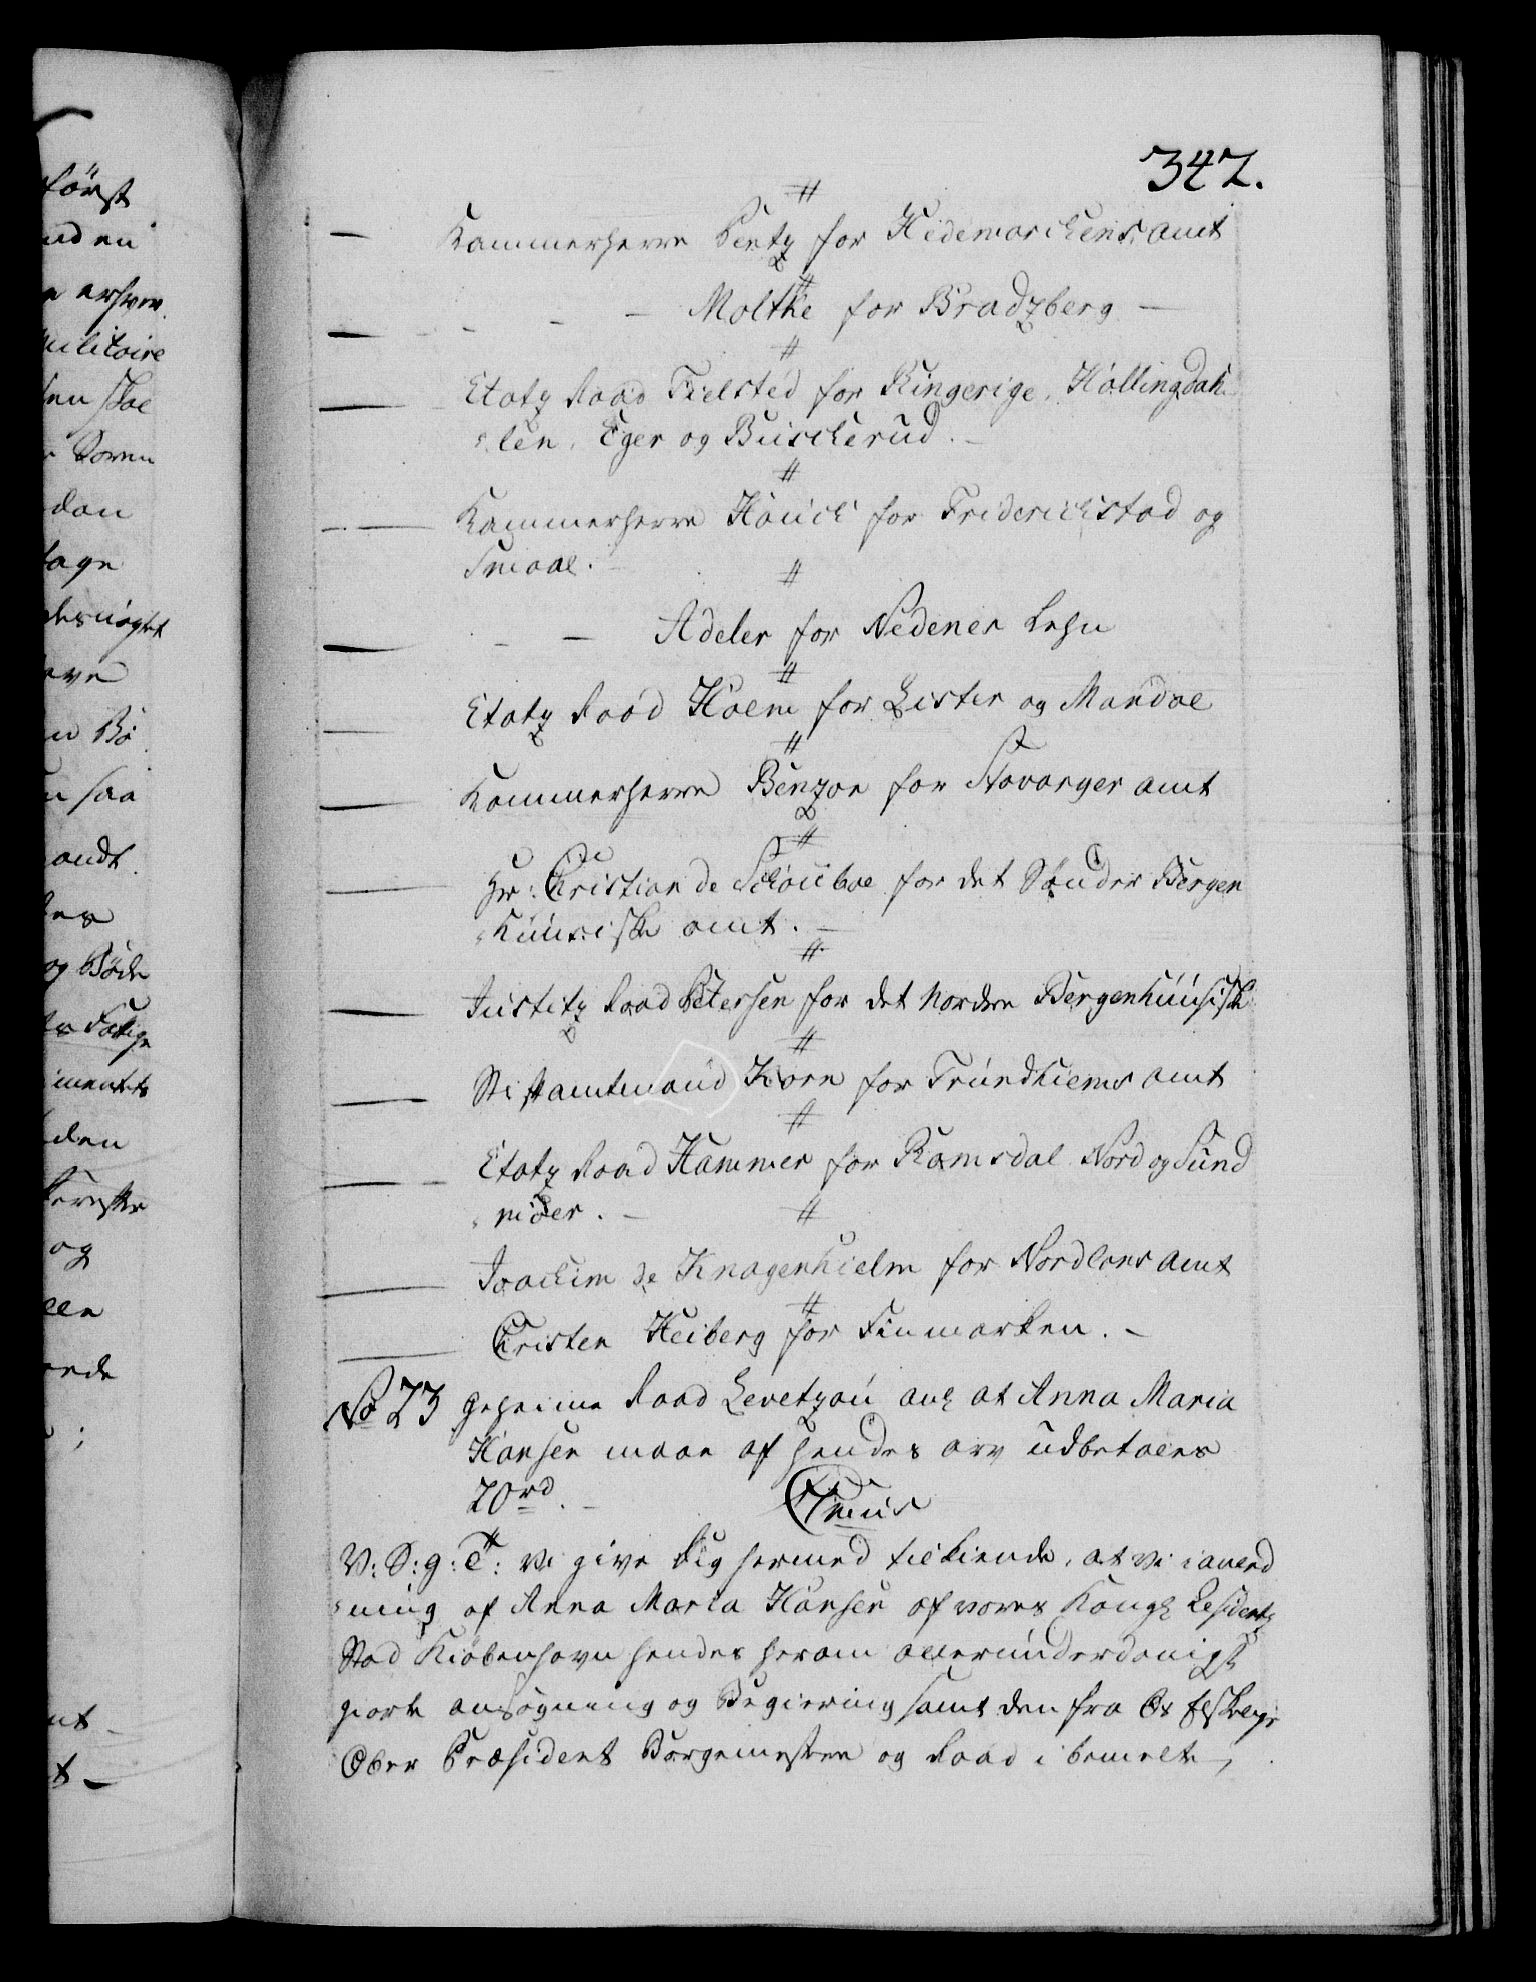 först
uden
militaire
dan
tage
saa
andt
og
den
og
342.
Kammerherre Pentz for Hedemarchens amt
— — — Moltke for Bradzberg —
Etatz Raad Fielsted for Ringerige, Hallingdah-
-len, Eger og Buscherud. —
Kammerherre Hauch for Friderichstad og
Smaal. —
— — Adeler for Nedenes Lehn
Etatz Raad Holm for Lister og Mandal
Kammerherre Benzon for Stavanger amt
Hr: Christian de Schouboe for det Sønder Bergen
-huusiske amt. —
Justitz Raad Petersen for det Nordre Bergenhuusiske
Stiftamtmand Horn for Trundhiems amt
Etatz Raad Hammer for Romsdal Nord og Sund
-møer. —
Joachim de Knagenhielm for Nordlans amt
Christen Heiberg for Finmarken. —
No 23 Geheime Raad Levetzau anl at Anna Maria
Hansen maae af hendes arv udbetales
70 rd. —
C7mus
V: S: g: T: Vi give Dig hermed tilkiende, at Vi i anled
-ning af Anna Maria Hansen af vores Kongl Residentz
Stad Kiöbenhavn hendes herom allerunderdanigst
giorte ansögning og Begiering samt den fra Os Elskelige
Ober Præsident Borgemestere og Raad i bemelte